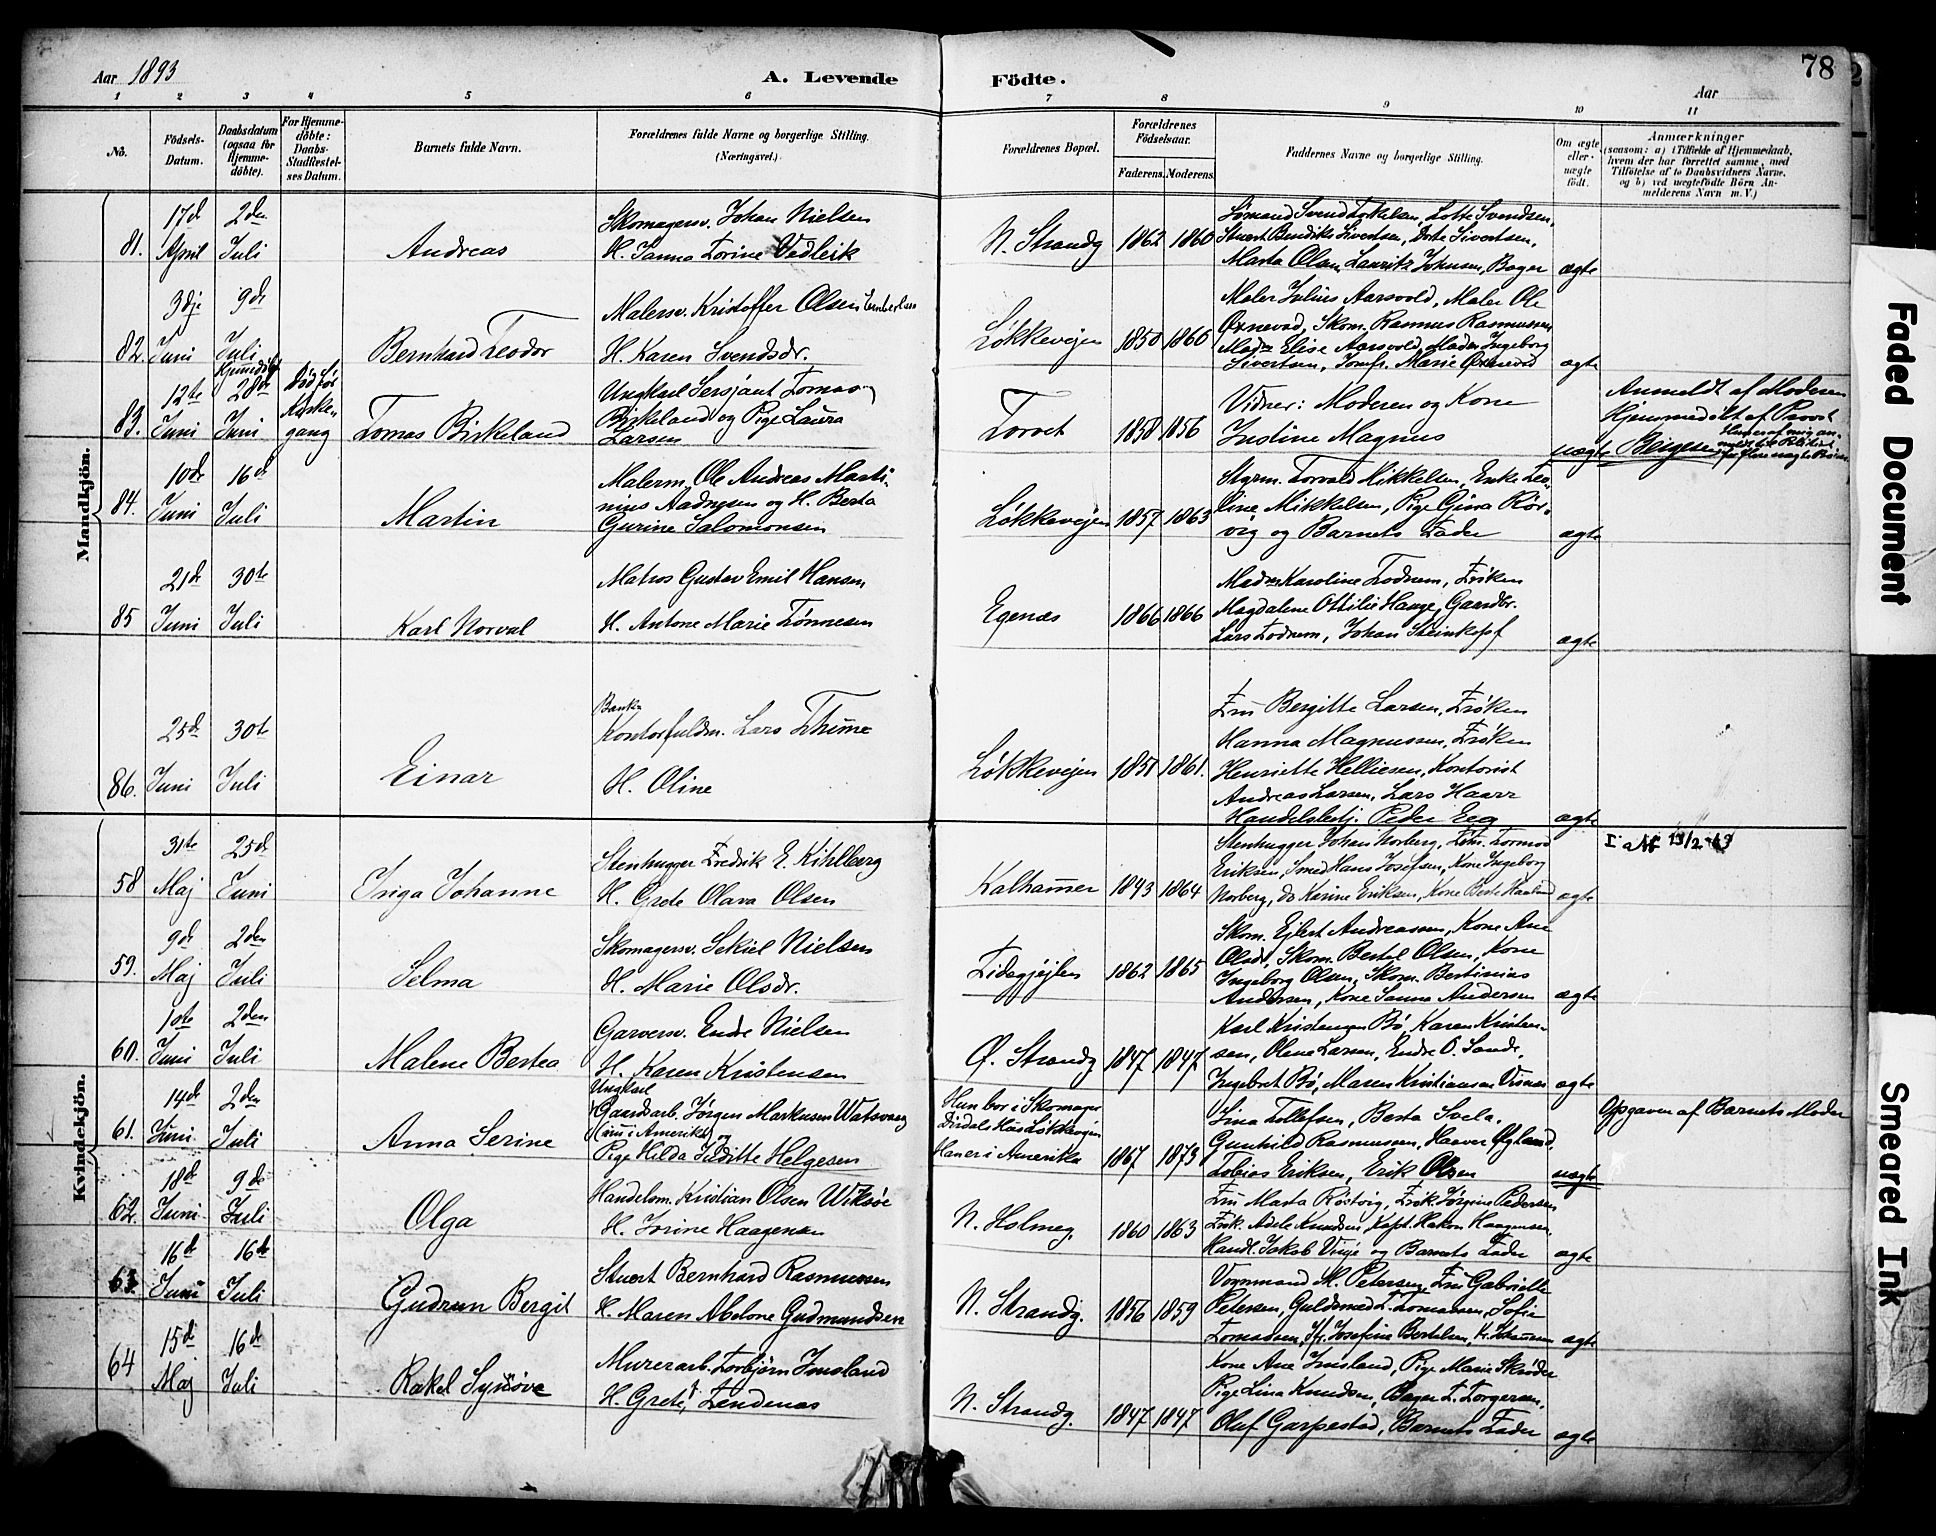 Aar 1893
A. Levende Födte.
78
Aar
1 2 3 4 5 6 7 8 9 10 11
No.
Födsels-Datum.
Daabsdatum (ogsaa for Hjemmedöbte).
For Hjemmedöbte: Daabs-Stadfæstelses Datum.
Barnets fulde Navn.
Forældrenes fulde Navne og borgerlige Stilling. (Næringsvei.)
Forældrenes Bopæl.
Forældrenes Födselsaar.
Faderens. Moderens.
Faddernes Navne og borgerlige Stilling.
Om ægte eller uægte födt.
Anmærkninger (saasom: a) i Tilfælde af Hjemmedaab, hvem der har forrettet samme, med Tilföielse af to Daabsvidners Navne, og b) ved uægtefödte Börn Anmelderens Navn m. V.)
Mandkjön.
81. 17d April 2den Juli
Andreas
Skomagersv. Johan Nielsen
H. Sanna Torine Vedleik
N. Strandg 1862 1860
Sømand Svend Torkelsen, Lotte Svendsen,
Stuert Bendiks Sivertsen, Dorte Sivertsen,
Marta Olsen, Lauritz Johnsen, Bager
ægte
82. 3dje Juni 9de Juli
Bernhard Teodor
Malersv. Kristoffer Olsen
H. Karen Svendsdr.
Løkkevejen 1850 1860
Maler Julius Aarsvold, Maler Ole
Øxnevad, Skom. Rasmus Rasmussen
Madm Elise Aarsvold, Madm Ingeborg
Sivertsen, Jomfr. Marie Øxnevad
ægte
83. 12te Juni Hjemmedøbt 28de Juni
Død før Kirkegang
Tomas Birkeland
Ungkarl Sersjant Tomas
Birkeland og Pige Laura
Larsen
Torvet 1858 1856
Vidner: Moderen og Kone
Justine Magnus
uægte
Anmeldt af Moderen
Hjemmedøbt af Provst
Bergesen
84. 10de Juni 16de Juli
Martin
Malerm. Ole Andreas Marti-
nius Aadnesen og H. Berta
Gurine Salomonsen
Løkkevejen 1857 1863
Styrm. Torvald Mikkelsen, Enke Teo-
line Mikkelsen, Pige Gina Rör-
vig og Barnets Fader
ægte
85 21de Juni 30te Juli
Karl Norval
Matros Gustav Emil Hansen
H. Antone Marie Tønnesen
Egenæs 1866 1866
Madm Karoline Todnem, Frøken
Magdalene Ottilie Hauge, Gaardbr.
Lars Todnem, Johan Steinkopf
ægte
86. 25de Juni 30te Juli
Einar
Bank-
Kontorfuldm. Lars Thime
H. Oline
Løkkevejen 1851 1861.
Fru Bergitte Larsen, Frøken
Hanna Magnussen, Frøken
Henriette Helliesen, Kontorist
Andreas Larsen, Lars Haarr
Handelsbetj. Peder Eeg
ægte
Kvindekjön.
58 31te Maj 25de Juni
Inga Johanne
Stenhugger Fredrik E. Kihlberg
H. Grete Olava Olsen
Kalhammer 1843 1864
Stenhugger Johan Norberg, Tormod
Eriksen, Smed Hans Josefsen, Kone Ingeborg
Norberg, do Karine Eriksen, Kone Berte Haaland
ægte
13/2-43
59. 9de Maj 2den Juli
Selma
Skomagersv. Sekiel Nielsen
H. Marie Olsdr.
Tidegjejlen 1862 1865
Skom. Ejlert Andreassen, Kone Ane
Olsdr, Skom. Bertel Olsen, Kone
Ingeborg Olsen, Skom. Bertinius
Andersen, Kone Sanna Andersen
ægte
60. 10te Juni 2den Juli
Malene Bertea
Garversv. Endre Nielsen
H. Karen Kristensen
Ø. Strandg 1847 1847
Karl Kristensen Bø, Karen Kristen-
sen, Olene Larsen, Endre O. Sande,
Ingebret Bø, Maren Kristiansen Visnes
ægte
61. 14de Juni 2den Juli
Anna Serine
Ungkarl
Gaardsarb. Jørgen Markusen Watsvaag
(nu i Amerika) og
Pige Hilda Juditte Helgesen
Hun bor i Skomager
Dirdals Hus Løkkevejen
Han er i Amerika
1867 1873
Sina Tollefsen, Berta Svela,
Gunhild Rasmussen, Haaver Øgland,
Tobias Eriksen, Erik Olsen
uægte
Opgaven af Barnets Moder
62. 18de Juni 9de Juli
Olga
Handelsm. Kristian Olsen Wiksøe
H. Jorine Haagensen
N. Holmeg. 1860 1863
Fru Marta Røstvig, Frøk. Jørgine Pedersen
Frøk. Adele Knudsen, Kapt. Hakon Haagensen,
Handl. Jakob Vinje og Barnets Fader
ægte
63. 16de Juni 16de Juli
Gudrun Bergit
Stuert Bernhard Rasmussen
H. Maren Abelone Gudmundsen
N. Strandg. 1856 1859
Vognmand M. Petersen, Fru Gabrielle
Petersen, Guldsmed T. Tomassen, Sofie
Tomassen, Jfr. Josefine Bertelsen,
ægte
64 15de Maj 16de Juli
Rakel Synöve
Murerarb. Torbjørn Imsland
H. Grete, f. Tendenas
N. Strandg. 1847 1847
Kone Ane Imsland, Pige Marie Skröder
Pige Lina Knudsen, Bager T. Torgersen,
Oluf Garpestad, Barnets Fader
ægte
Faded Document
Smeared Ink